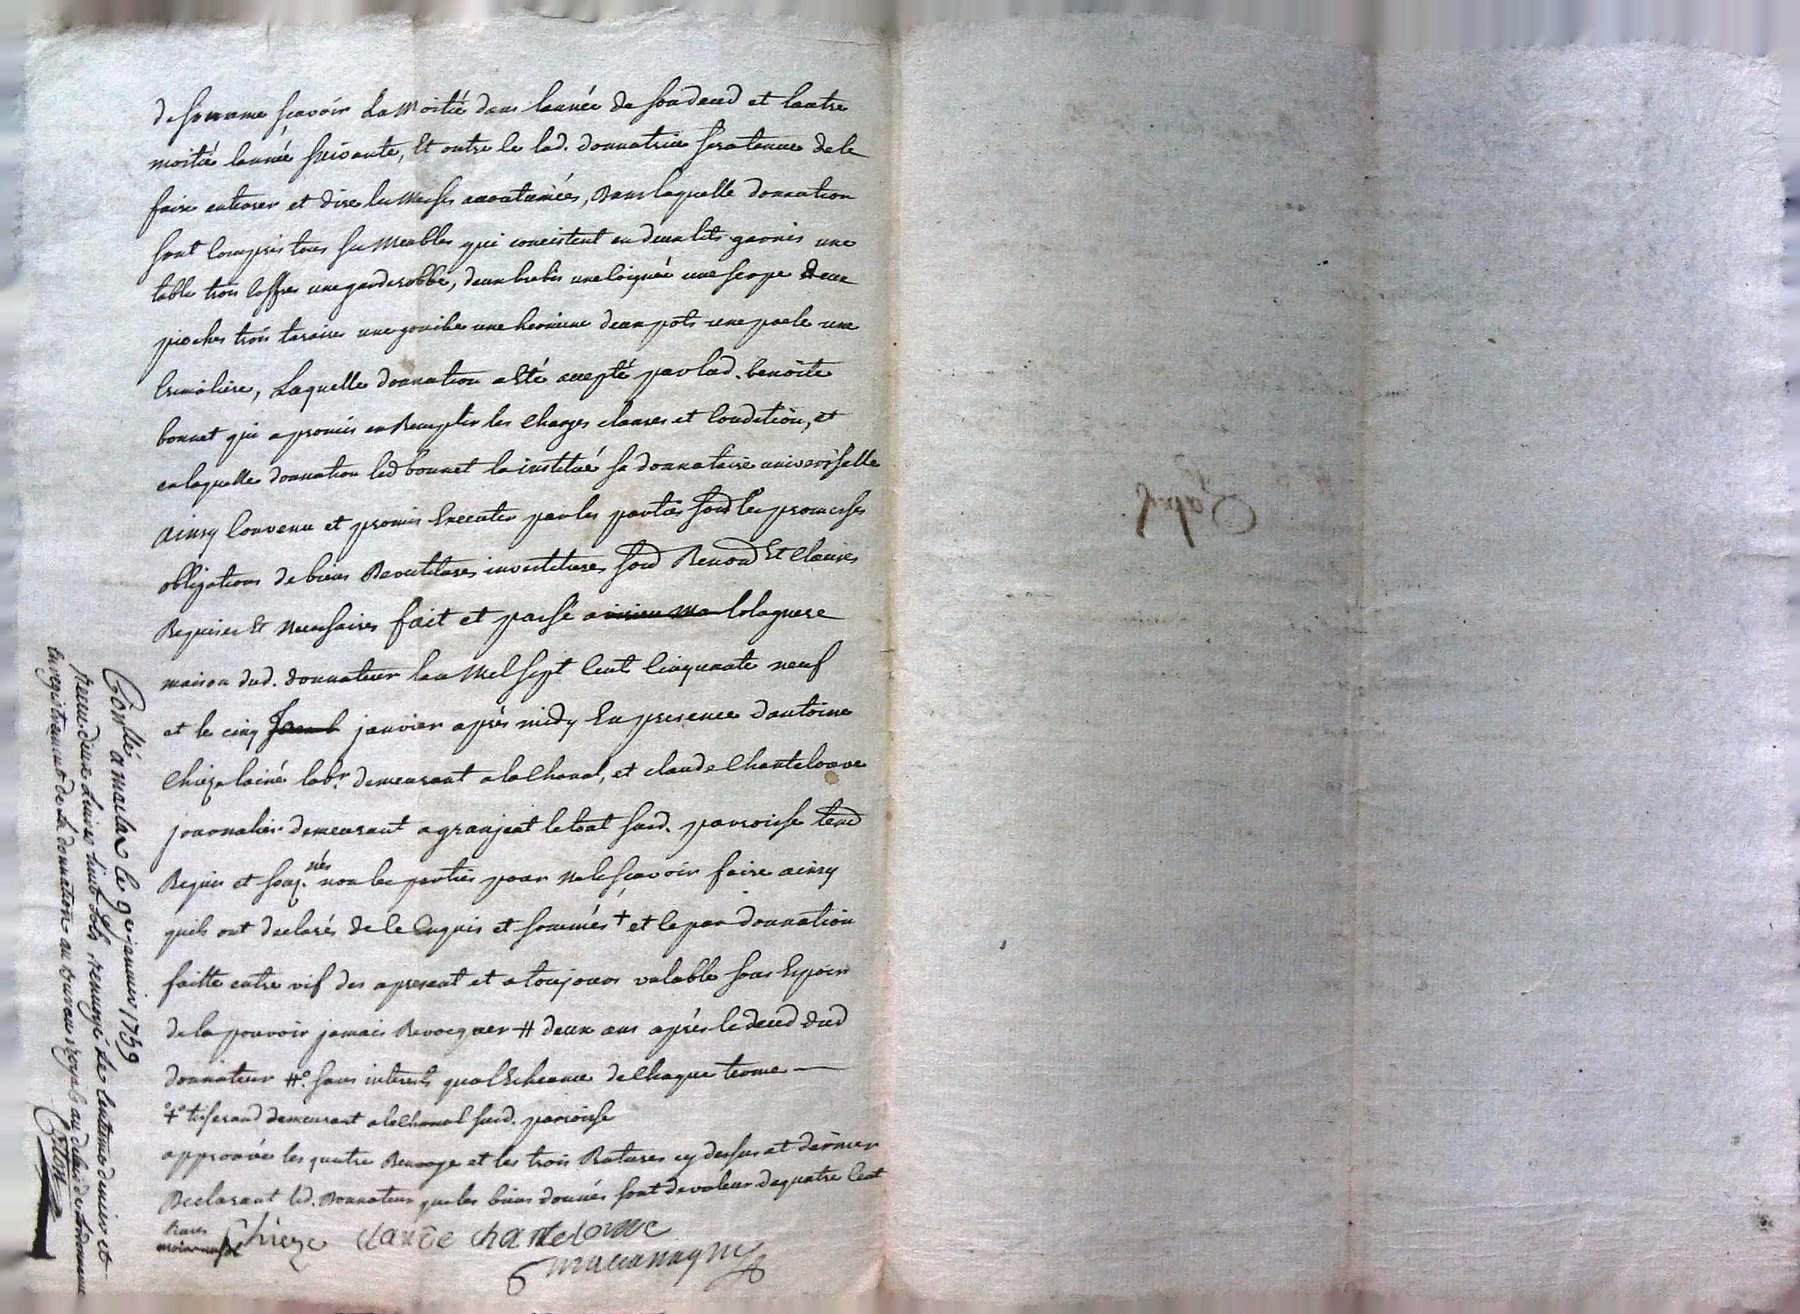 de son ame scavoir La Moitié dans lannée de son deced et lautre
moitié lannée suivante, Et outre ce lad. donnatrice sera tenue de le
faire enterer et dire les Messes accoutumées, Dans laquelle donnation
sont compris tous ses Meubles qui concistent en deux lits garnis une
table trois coffres une garderobbe, deux brebis une coignée une
pioches trois taraire une une deux pots une poele une
Cremoliere, Laquelle donnation a Eté accepté par lad. benoite
bonnet qui a promis en Remplir les Charges clauses et Condition, et
en laquelle donnation led bonnet la institué sa donnataire universelle
Ainsy Convenu et promis Executer par les parties sous les promesses
obligations de biens investitures Et Clauses
Requises Et Necessaires fait et passé a
maison dud. donnateur lan Mil sept Cent Cinquante neuf
et le cinq janvier après midy En presence dantoine
Chieze lainé labr. demeurant a la Chanal, et claude Chantelouve
journalier demeurant a granjeat le tout sud. parroisse
Requis et soussignés non les parties pour ne le scavoir faire ainsy
quils ont declarés de ce Enquis et sommés + et ce par donnation
faitte entre vif des apresent et a toujours valable sans Espoir
de la pouvoir jamais Revocquer # deux ans après le deced dud
donnateur #o sans interests qua lEcheance de Chaque terme —
+o tisserand demeurant a la Chanal sud. parroisse
approuvé les quatre Renvoys et les trois Ratures cy dessus et dernier
Declarant led. Donnateur que les biens donnés sont de valeur de quatre Cent
livres
Chieze claude chantelouve
Conllé a le 9e janvier 1759
Receu deux Livres huit sols renvoyé Le Centieme denier et
Enregistrement de La donnation au bureau au delais de Lordonnance